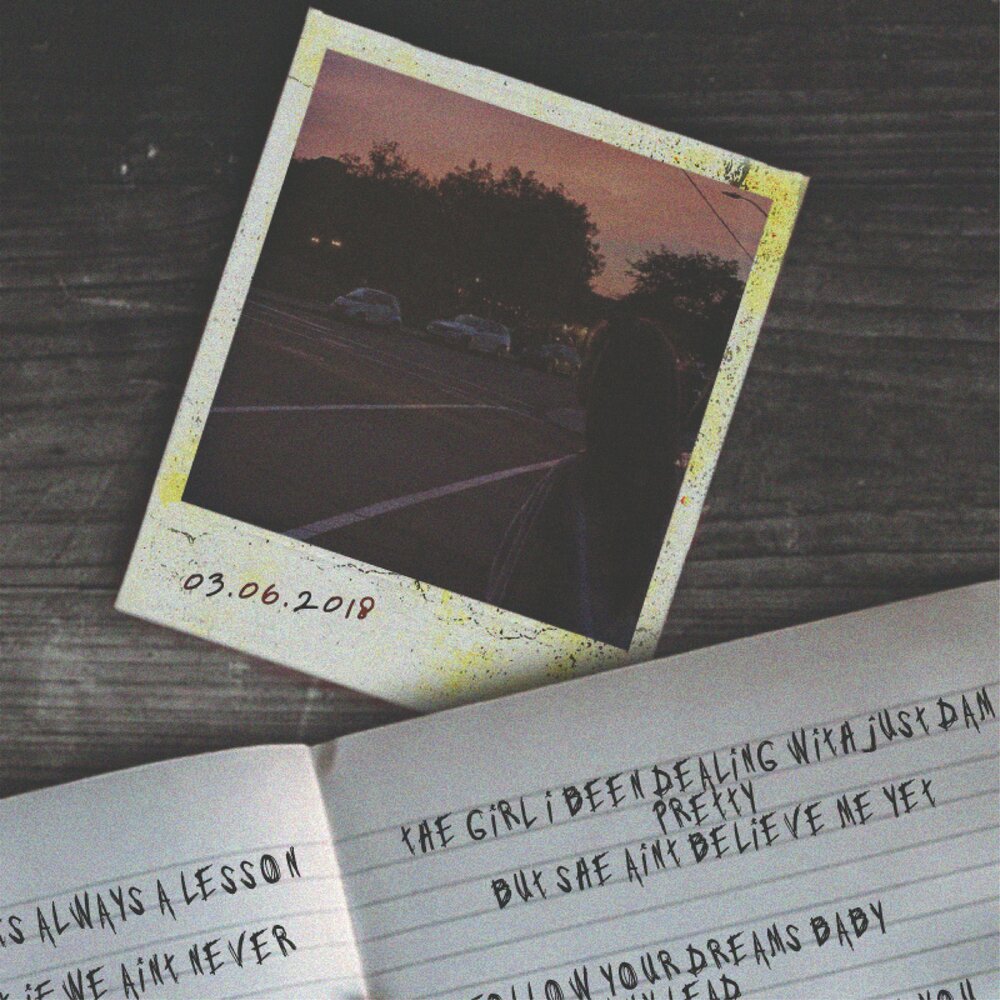 03.06.2018
ALWAYS A LESSON
WE AINT NEVER
THE GIRL I BEEN DEALING WITH JUST DAM
PRETTY
BUT SHE AINT BELIEVE ME YET
FOLLOW YOUR DREAMS BABY
MY LEAD
YOU